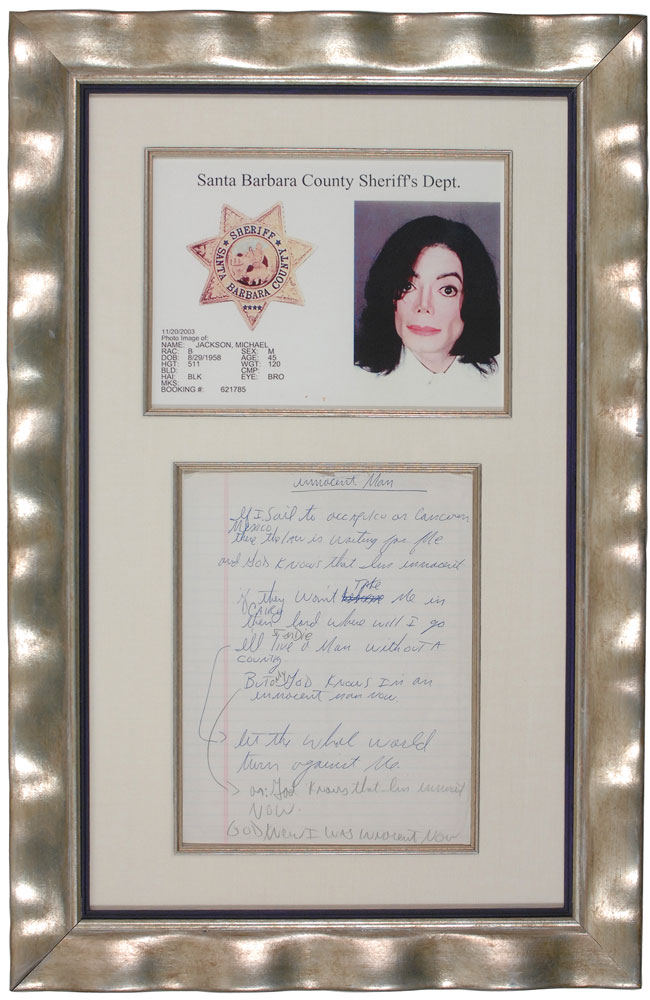 Santa Barbara County Sheriff's Dept.
SHERIFF
SANTA BARBARA COUNTY
11/20/2003
Photo Image of:
NAME: JACKSON, MICHAEL
RAC: B SEX: M
DOB: 8/29/1958 AGE: 45
HGT: 511 WGT: 120
BLD: CMP:
HAI: BLK EYE: BRO
MKS:
BOOKING #: 621785
innocent Man
If I Sail to or
Mexico
the law is waiting for Me
and God knows that innocent
if they won't Take Me in
CAIRO
then lord where will I go
I'll live a Man without A
TO Die
country
But God Knows I'm an
innocent man now.
let the whol world
turn against Me
God Knows that innocent
NOW.
GOD I WAS INNOCENT NOW